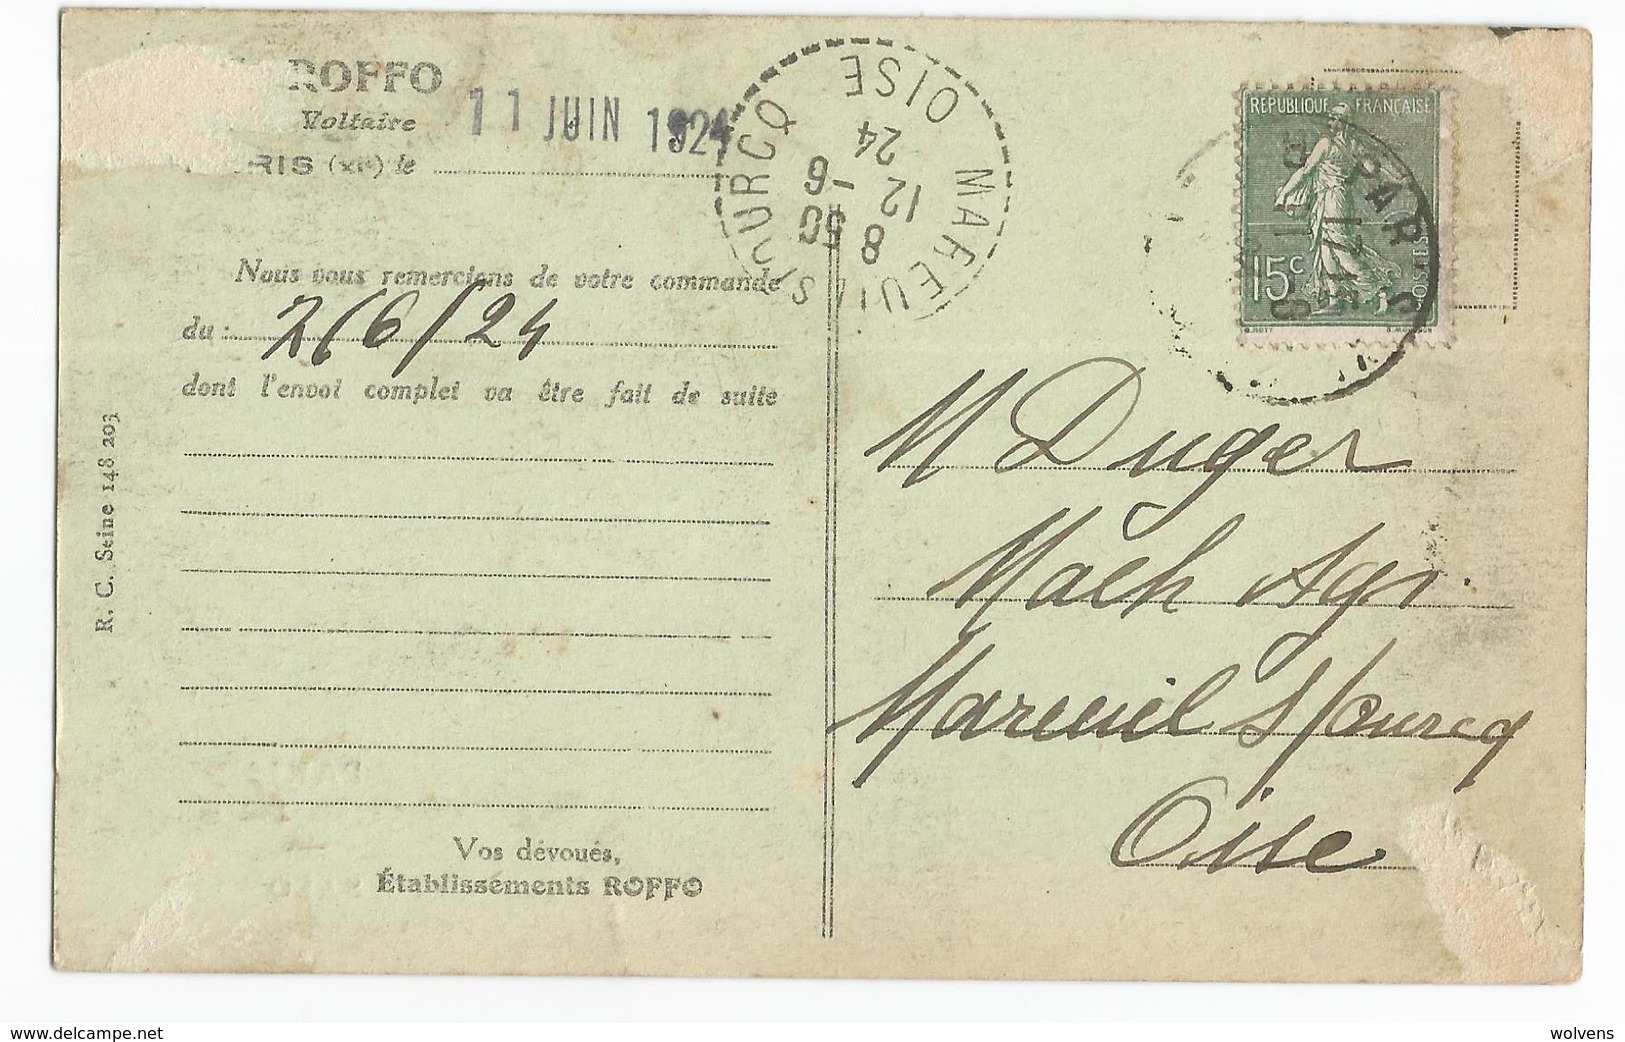 ROFFO
Voltaire
RIS (XIe) le
11 JUIN 1924
OISE
MAREUIL S/OURCQ
8 50
12 -6
24
RÉPUBLIQUE FRANÇAISE
15c
POSTES
PAR
Nous vous remercions de votre commande
du : 2/6/24
dont l'envoi complet va être fait de suite
R. C. Seine 148.203
M Duger
Mach Agr.
Mareuil s/Ourcq
Oise
Vos dévoués,
Établissements ROFFO
www.delcampe.net
wolvens